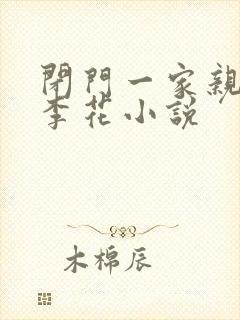 閉門一家親
李花小說
木棉辰